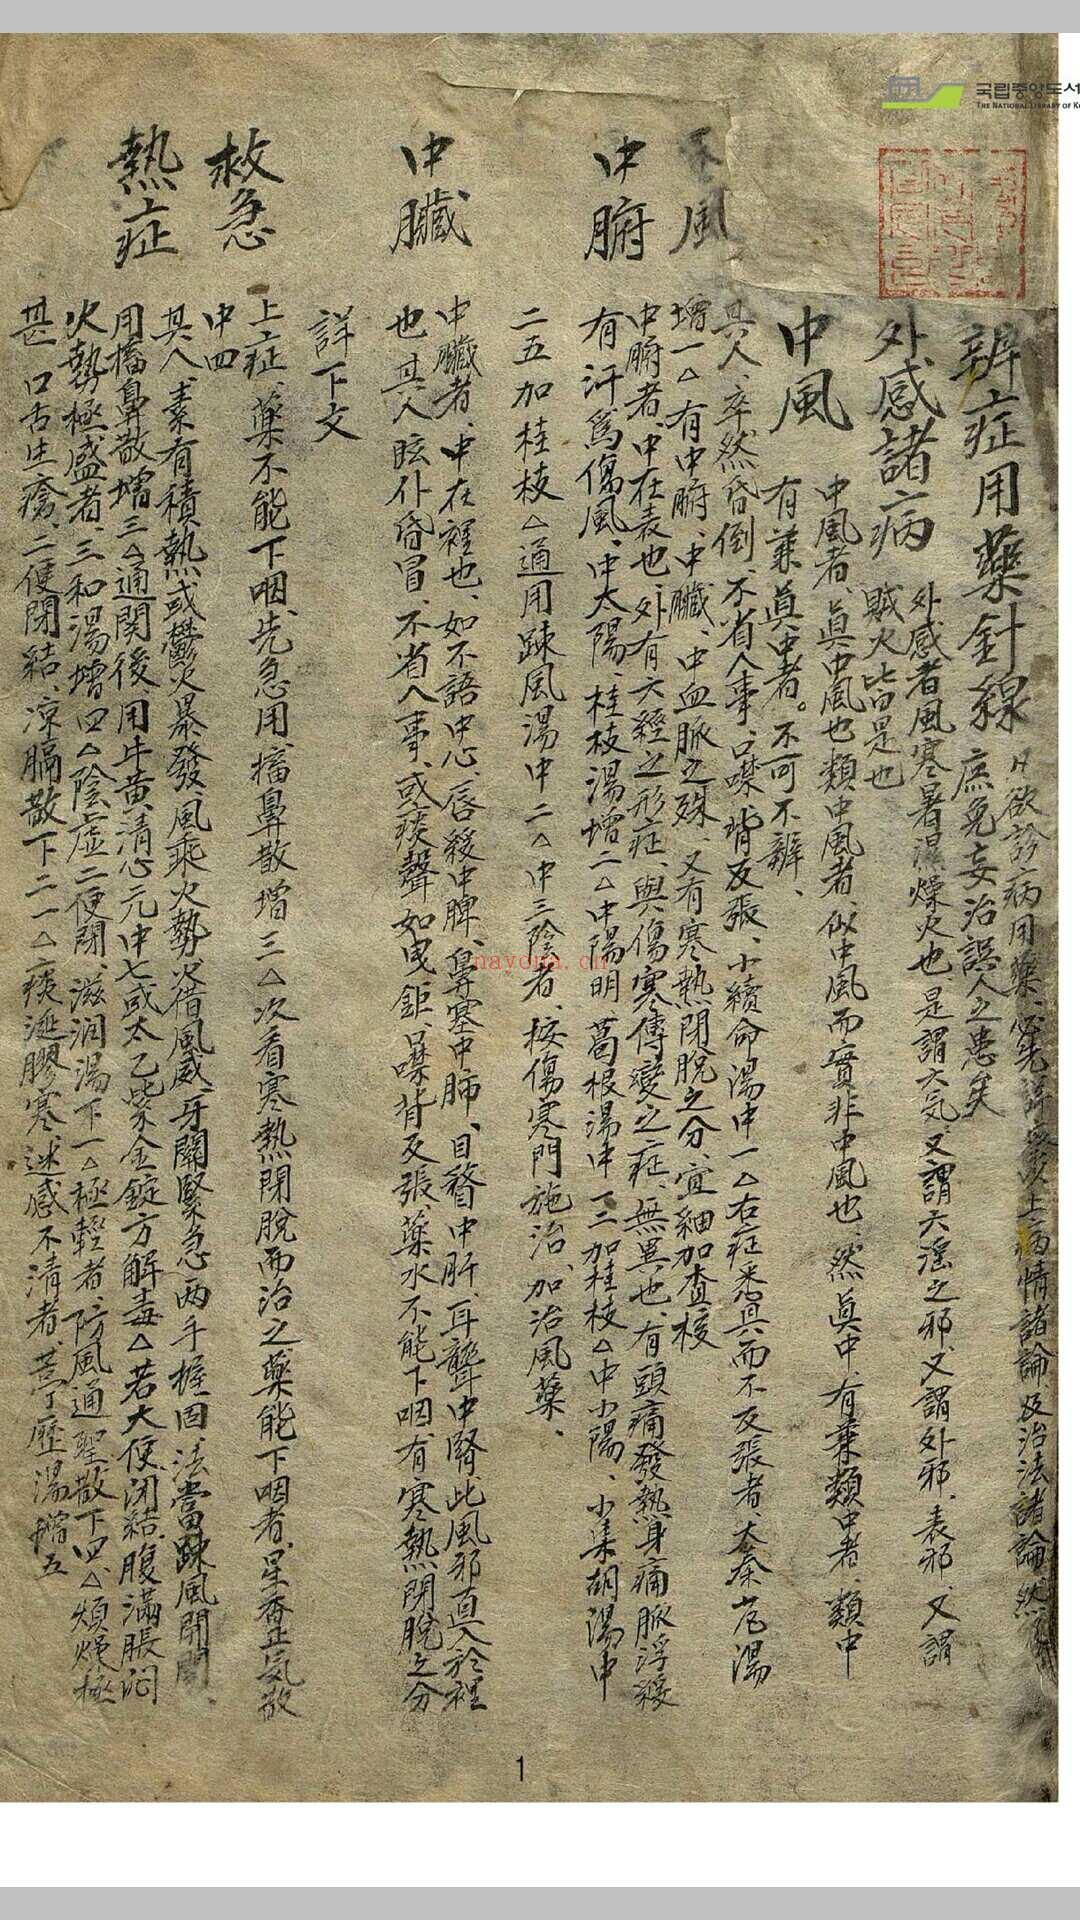 국립중앙도서
THE NATIONAL LIBRARY OF K
辨症用藥針線
欲診病用藥、必先詳 以上病情諸論、及治法諸論、然
庶免妄治誤人之患矣
外感諸病
外感者風寒暑濕燥火也是謂六気、又謂六淫之邪、又謂外邪、表邪、又謂
賊火皆是也
中風
中風者、眞中風也類中風者、似中風而實非中風也、然眞中、有兼類中者、類中
有兼眞中者。不可不辨、
風
其人、卒然昏倒、不省人事、口噤、背反張、小續命湯中一△右症悉具而不反張者、大秦芃湯
增一△有中腑、中臟、中血脈之殊、又有寒熱閉脫之分、宜細加查核
中腑
中腑者、中在表也、外有六經之形症、與傷寒傳變之症、無異也、有頭痛發熱身痛脈浮緩
有汗爲傷風、中太陽、桂枝湯增二△中陽明葛根湯中二二加桂枝△中小陽、小柴胡湯中
二五加桂枝△通用踈風湯中二△中三陰者、按傷寒門施治、加治風藥、
中臟
中臟者、中在裡也、如不語中心、唇緩中脾、鼻塞中肺、目瞀中肝、耳聾中腎、此風邪直入於裡
也、其人眩仆昏冒、不省人事、或痰聲如曳鉅、口噤背反張、藥水不能下咽、有寒熱閉脫之分
詳下文
救急
上症、藥不能下咽、先急用、搐鼻散增三△次看寒熱閉脫而治之藥能下咽者、星香正気散
中四
熱症
其人、素有積熱、或鬱火暴發、風乘火勢、火借風威、牙關緊急、两手握固、法當踈風開關、
用搐鼻散增三△通関後、用牛黃清心元中七或太乙紫金錠方解毒△若大便閉結、腹滿脹悶
火勢極盛者、三和湯增四△陰虛二便閉、滋润湯下一△極輕者、防風通聖散下四△煩燥極
甚、口舌生瘡、二便閉結、凉膈散下二一△痰涎膠寒、迷惑不清者、葶藶湯增五
1
nayona.cn